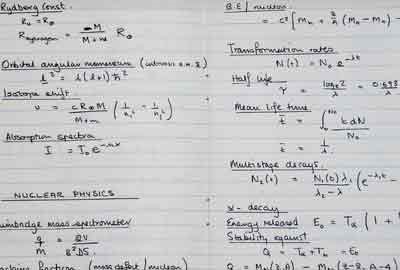 Rydberg Const.
R₀ = R∞
R hydrogen = M / M+m R∞
Orbital angular momentum
l² = l(l+1)ħ²
Isotope shift.
υ = cR∞M / M+m (1/n₁² - 1/n₂²)
Absorption spectra
I = I₀e
NUCLEAR PHYSICS
mass spectrometer
q/m =
(mass defect / nucleon)
B.E / nucleon
Transformation rates
N(t) = N₀ e^-λt
Half life
τ = log e 2 / λ = 0.693
Mean life time
t̄ = ∫ t dN / N₀
t̄ = 1/λ
Multistage decays.
N₂(t) = N₁(0) λ₁ / λ₂ - λ₁ (e^-λ₁t -
α - decay
Energy released E₀ = Tα (1 +
Stability against
Q = Tα + T = E₀